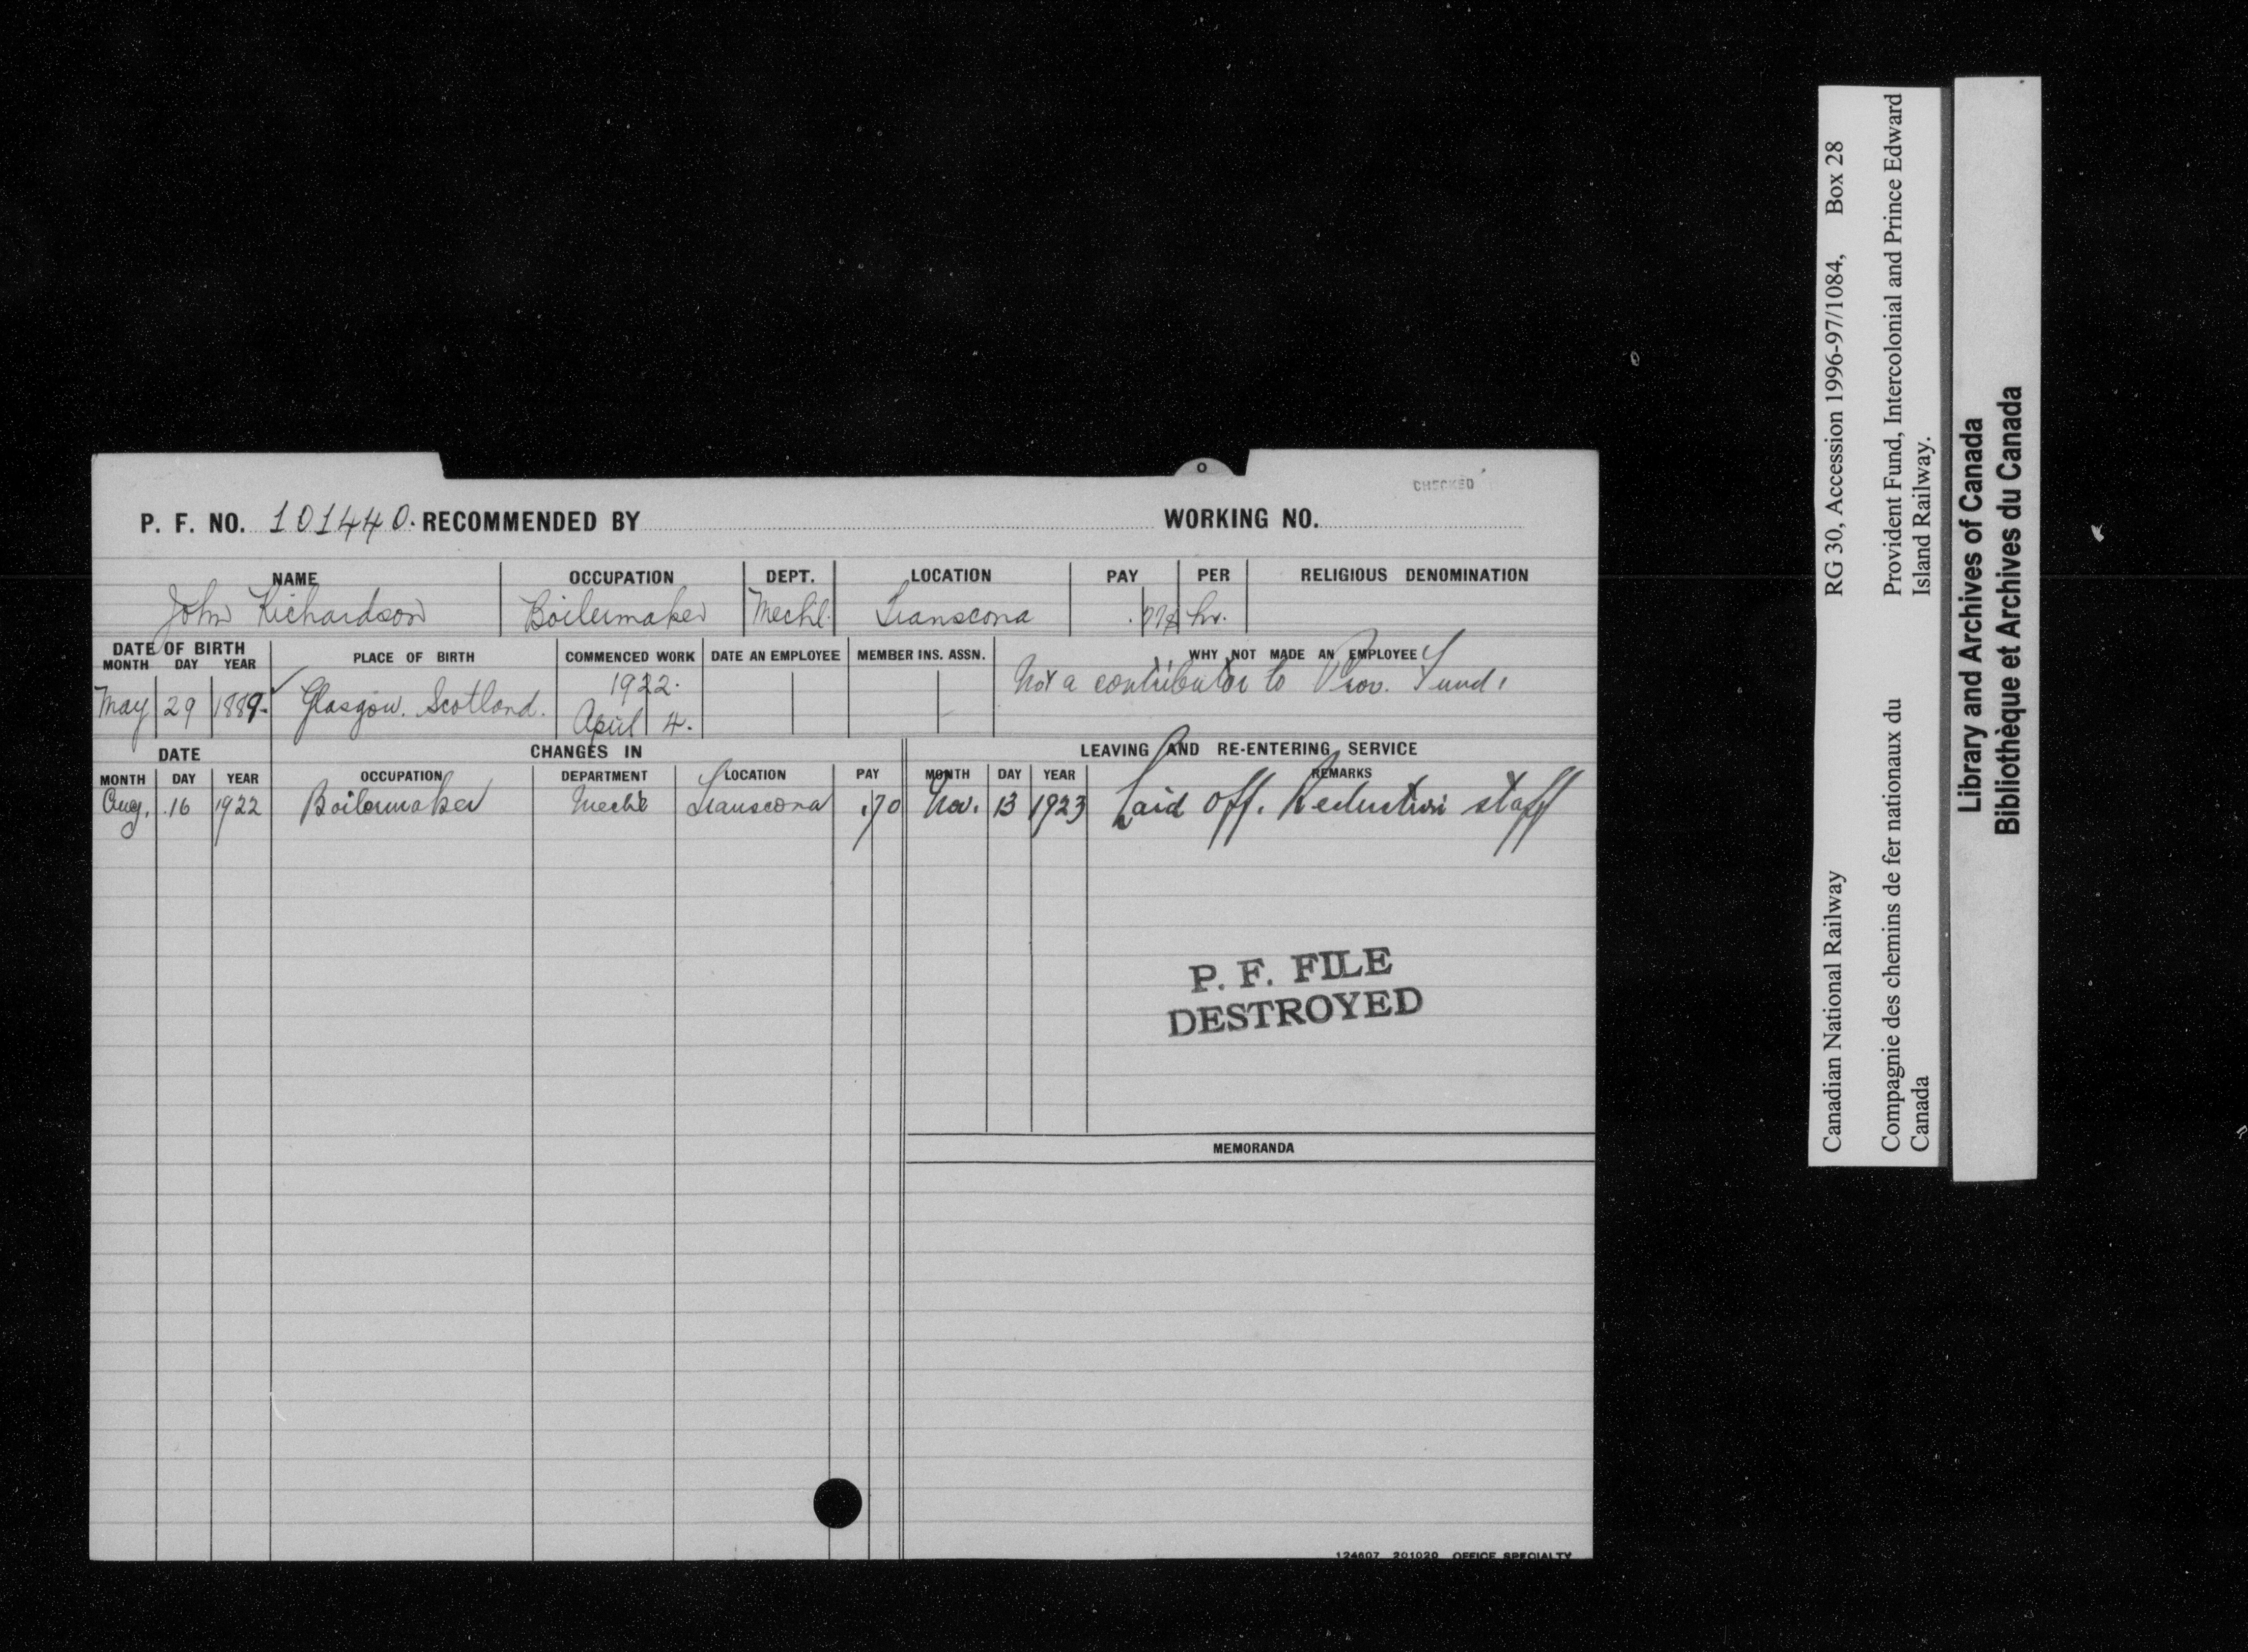 CHECKED
P. F. NO. 101440. RECOMMENDED BY WORKING NO.
NAME OCCUPATION DEPT. LOCATION PAY PER RELIGIOUS DENOMINATION
John Richardson Boilermaker Mech'l. Transcona hr.
DATE OF BIRTH
MONTH DAY YEAR PLACE OF BIRTH COMMENCED WORK DATE AN EMPLOYEE MEMBER INS. ASSN. WHY NOT MADE AN EMPLOYEE
1922. Not a contributor to Prov. Fund.
May 29 1889. Glasgow. Scotland. April 4.
DATE CHANGES IN LEAVING AND RE-ENTERING SERVICE
MONTH DAY YEAR OCCUPATION DEPARTMENT LOCATION PAY MONTH DAY YEAR REMARKS
Aug. 16 1922 Boilermaker Mech'l Transcona .70 Nov. 13 1923 Laid off. Reduction staff
P. F. FILE
DESTROYED
MEMORANDA
124607 201020 OFFICE SPECIALTY
Canadian National Railway RG 30, Accession 1996-97/1084, Box 28
Compagnie des chemins de fer nationaux du Provident Fund, Intercolonial and Prince Edward
Canada Island Railway.
Library and Archives of Canada
Bibliothèque et Archives du Canada